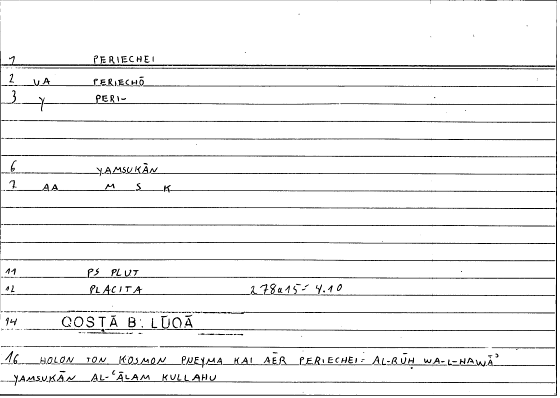 1 PERIECHEI
2 UA PERIECHŌ
3 Y PERI-
6 YAMSUKĀN
7 AA M S K
11 PS PLUT
12 PLACITA 278a15= 4.10
14 QOSṬĀ B. LŪQĀ
16 HOLON TON KOSMON PNEYMA KAI AĒR PERIECHEI= AL-RŪḤ WA-L-HAWĀʾ
YAMSUKĀN AL-ʿĀLAM KULLAHU